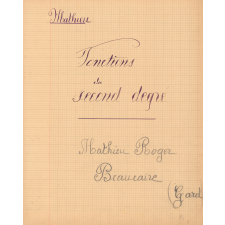 Mathieu
Fonctions
du
second degré
Mathieu Roger
Beaucaire
(Gard)